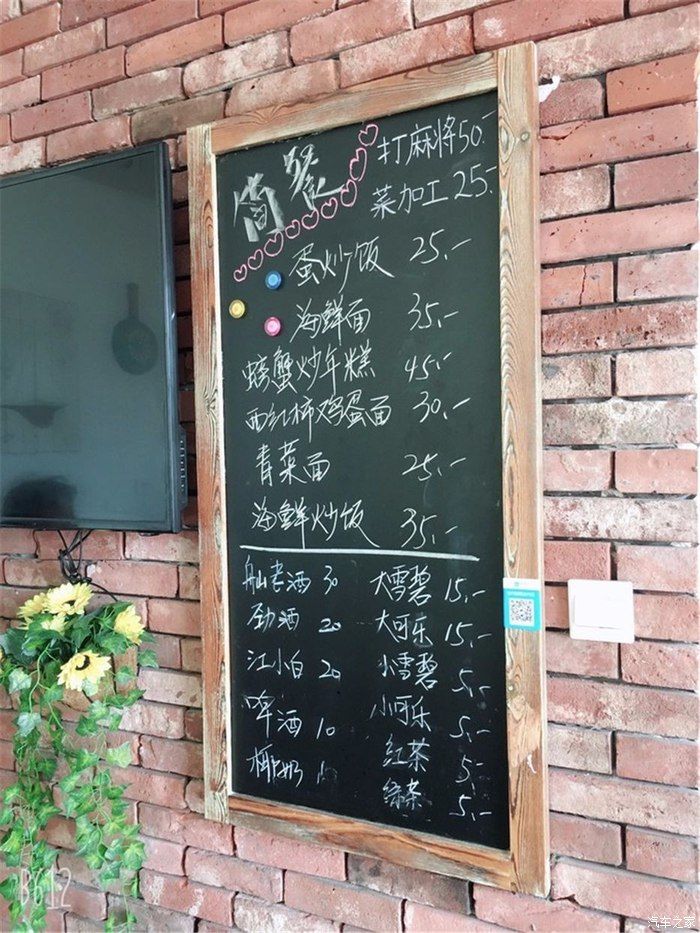 简餐
打麻将50.-
菜加工25.-
蛋炒饭 25.-
海鲜面 35.-
螃蟹炒年糕 45.-
西红柿鸡蛋面 30.-
青菜面 25.-
海鲜炒饭 35.-
舢老酒 30 大雪碧 15.-
劲酒 20 大可乐 15.-
江小白 20 小雪碧 5.-
啤酒 10 小可乐 5.-
椰奶 红茶 5.-
绿茶 5.-
B612
汽车之家